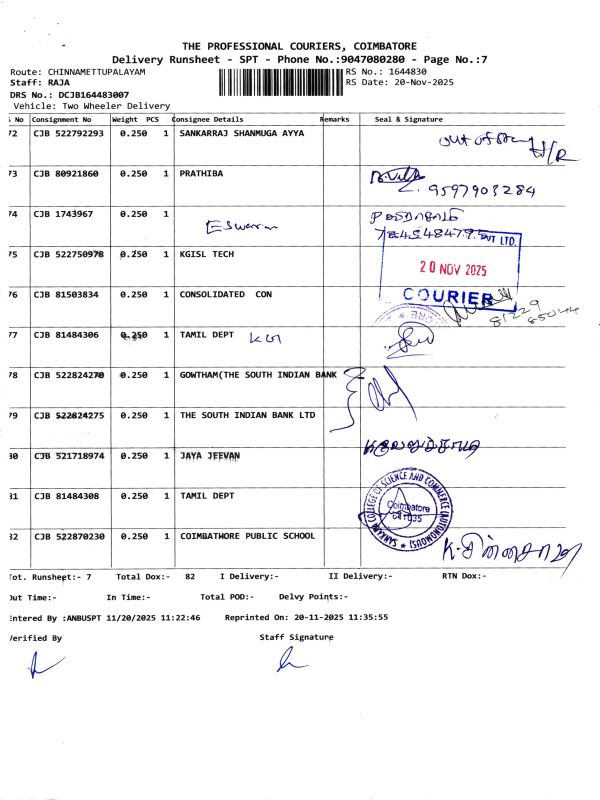 THE PROFESSIONAL COURIERS, COIMBATORE
Delivery Runsheet - SPT - Phone No.:9047080280 - Page No.:7
Route: CHINNAMETTUPALAYAM
RS No.: 1644830
Staff: RAJA
RS Date: 20-Nov-2025
DRS No.: DCJB164483007
Vehicle: Two Wheeler Delivery
No Consignment No Weight PCS Consignee Details Remarks Seal & Signature
72 CJB 522792293 0.250 1 SANKARRAJ SHANMUGA AYYA
out of
73 CJB 80921860 0.250 1 PRATHIBA
9597903284
74 CJB 1743967 0.250 1
Eswaran
75 CJB 522750978 0.250 1 KGISL TECH
PVT LTD.
20 NOV 2025
COURIER
76 CJB 81503834 0.250 1 CONSOLIDATED CON
81229
77 CJB 81484306 0.250 1 TAMIL DEPT
78 CJB 522824270 0.250 1 GOWTHAM(THE SOUTH INDIAN BANK
79 CJB 522824275 0.250 1 THE SOUTH INDIAN BANK LTD
80 CJB 521718974 0.250 1 JAYA JEEVAN
81 CJB 81484308 0.250 1 TAMIL DEPT
COLLEGE OF SCIENCE AND COMMERCE (AUTONOMOUS)
Coimbatore
641035
82 CJB 522870230 0.250 1 COIMBATHORE PUBLIC SCHOOL
Tot. Runsheet:- 7 Total Dox:- 82 I Delivery:- II Delivery:- RTN Dox:-
Out Time:- In Time:- Total POD:- Delvy Points:-
Entered By :ANBUSPT 11/20/2025 11:22:46 Reprinted On: 20-11-2025 11:35:55
Verified By Staff Signature